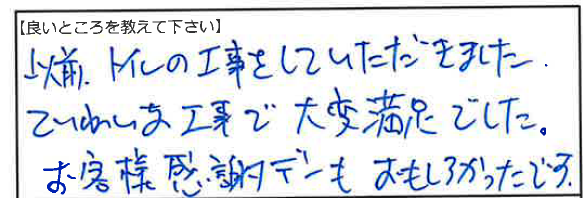 【良いところを教えて下さい】
以前、トイレの工事をしていただきました.
ていねいな工事で大変満足でした。
お客様感謝デーも おもしろかったです.